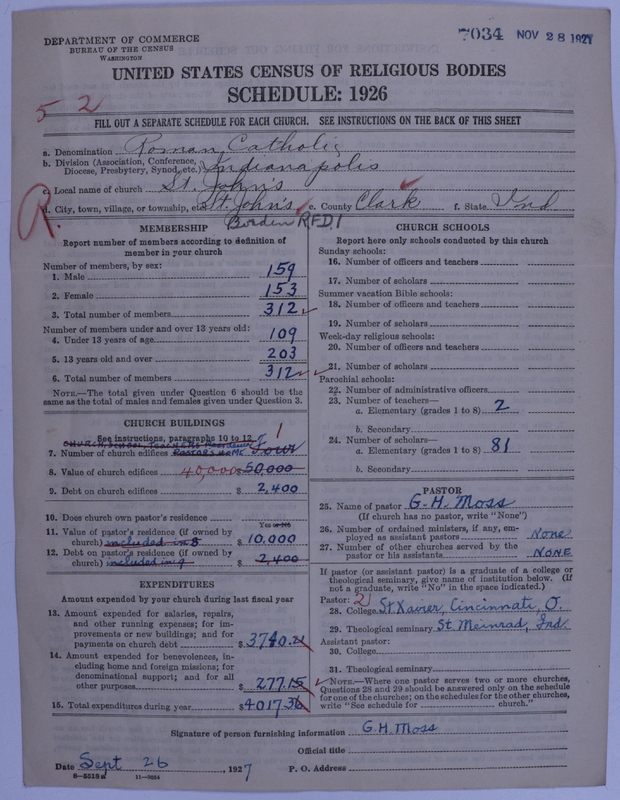 DEPARTMENT OF COMMERCE
BUREAU OF THE CENSUS
WASHINGTON
7034 NOV 28 1927
UNITED STATES CENSUS OF RELIGIOUS BODIES
SCHEDULE: 1926
52
FILL OUT A SEPARATE SCHEDULE FOR EACH CHURCH. SEE INSTRUCTIONS ON THE BACK OF THIS SHEET
a. Denomination Roman Catholic
b. Division (Association, Conference, Diocese, Presbytery, Synod, etc.) Indianapolis
c. Local name of church St. John's
R. d. City, town, village, or township, etc. St. John's e. County Clark f. State Ind
Borden RFD 1
MEMBERSHIP
Report number of members according to definition of
member in your church
Number of members, by sex:
1. Male 159
2. Female 153
3. Total number of members 312
Number of members under and over 13 years old:
4. Under 13 years of age 109
5. 13 years old and over 203
6. Total number of members 312
NOTE.—The total given under Question 6 should be
same as the total of males and females given under Question 3.
CHURCH BUILDINGS
See instructions, paragraphs 10 to 12 1
CHURCH, SCHOOL, TEACHERS RESIDENCE &
7. Number of church edifices PASTORS HOME Four
8. Value of church edifices 40,000 $ 50,000
9. Debt on church edifices $ 2,400
10. Does church own pastor's residence
Yes or no
11. Value of pastor's residence (if owned by
church) included in 8 $ 10,000
12. Debt on pastor's residence (if owned by
church) included in 9 $ 2,400
EXPENDITURES
Amount expended by your church during last fiscal year
13. Amount expended for salaries, repairs,
and other running expenses; for im-
provements or new buildings; and for
payments on church debt $ 3740.21
14. Amount expended for benevolences, in-
cluding home and foreign missions; for
denominational support; and for all
other purposes $ 277.15
15. Total expenditures during year $ 4017.36
CHURCH SCHOOLS
Report here only schools conducted by this church
Sunday schools:
16. Number of officers and teachers
17. Number of scholars
Summer vacation Bible schools:
18. Number of officers and teachers
19. Number of scholars
Week-day religious schools:
20. Number of officers and teachers
21. Number of scholars
Parochial schools:
22. Number of administrative officers
23. Number of teachers—
a. Elementary (grades 1 to 8) 2
b. Secondary
24. Number of scholars—
a. Elementary (grades 1 to 8) 81
b. Secondary
PASTOR
25. Name of pastor G. H. Moss
(If church has no pastor, write "None")
26. Number of ordained ministers, if any, em-
ployed as assistant pastors None
27. Number of other churches served by the
pastor or his assistants NONE
If pastor (or assistant pastor) is a graduate of a college or
theological seminary, give name of institution below. (If
not a graduate, write "No" in the space indicated.)
Pastor: 21
28. College St Xavier, Cincinnati, O.
29. Theological seminary St Meinrad, Ind.
Assistant pastor:
30. College
31. Theological seminary
NOTE.—Where one pastor serves two or more churches,
Questions 28 and 29 should be answered only on the schedule
for one of the churches; on the schedules for the other churches,
write "See schedule for church."
Signature of person furnishing information G. H. Moss
Official title
Date Sept 26, 1927 P. O. Address